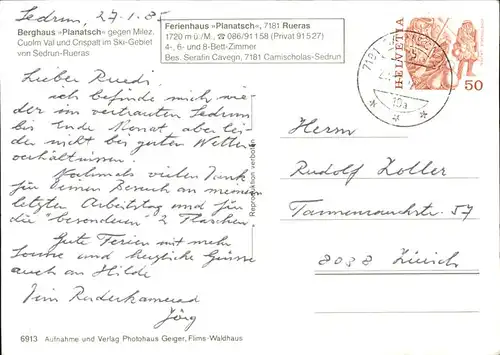 Sedrun, 27.1.85
Berghaus »Planatsch« gegen Milez.
Cuolm Val und Crispalt im Ski-Gebiet
von Sedrun-Rueras
Ferienhaus »Planatsch«, 7181 Rueras
1720 m ü/M., ☎ 086/91158 (Privat 91527)
4-, 6- und 8-Bett-Zimmer
Bes. Serafin Cavegn, 7181 Camischolas-Sedrun
Lieber Ruedi,
ich befinde mich wie-
der im vertrauten Sedrun
bis Ende Monat, aber lei-
der nicht bei guten Wetter-
verhältnissen.
Nochmals vielen Dank
für Deinen Besuch an meinem
letzten Arbeitstag und für
die "besonderen" 2 Flaschen.
Gute Ferien mit mehr
Sonne und herzliche Grüsse
auch an Hilde
Dein Ruderkamerad
Jörg
6913 Aufnahme und Verlag Photohaus Geiger, Flims-Waldhaus
Reproduktion verboten
7181
10a
HELVETIA
50
Herrn
Rudolf Zoller
Tannenrauchstr. 57
8038 Zürich